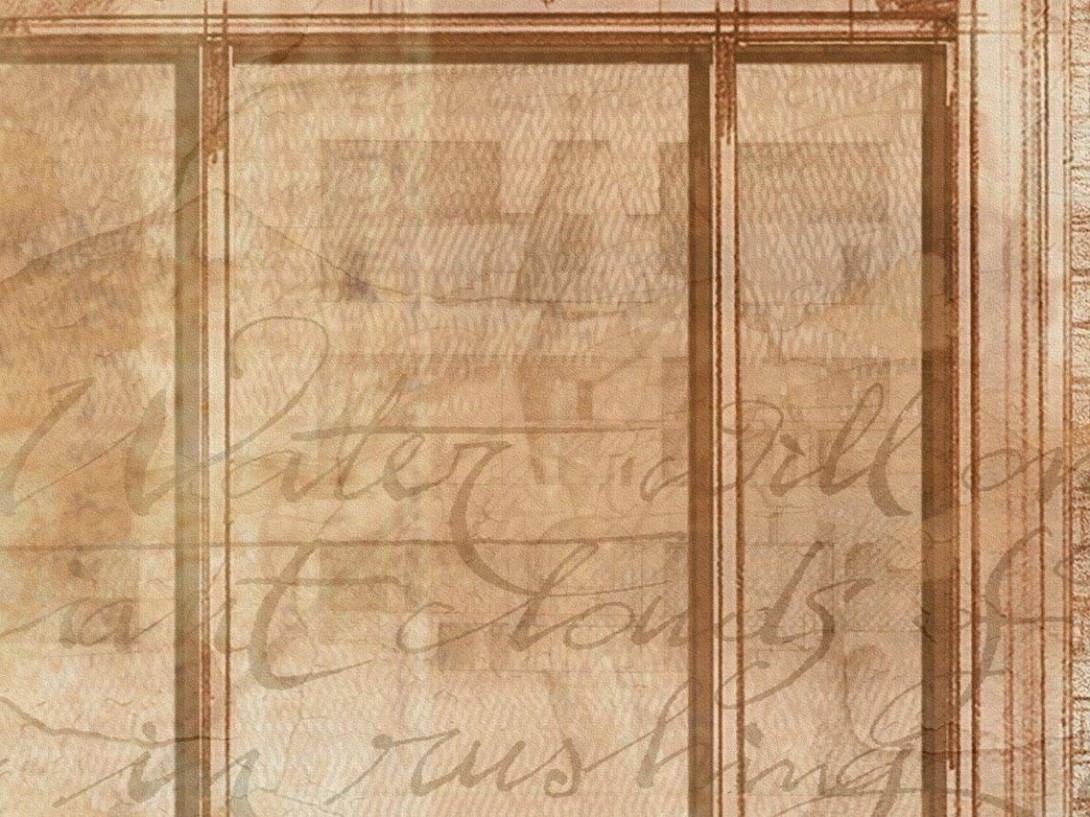 Water will on
art clouds of
in rushing